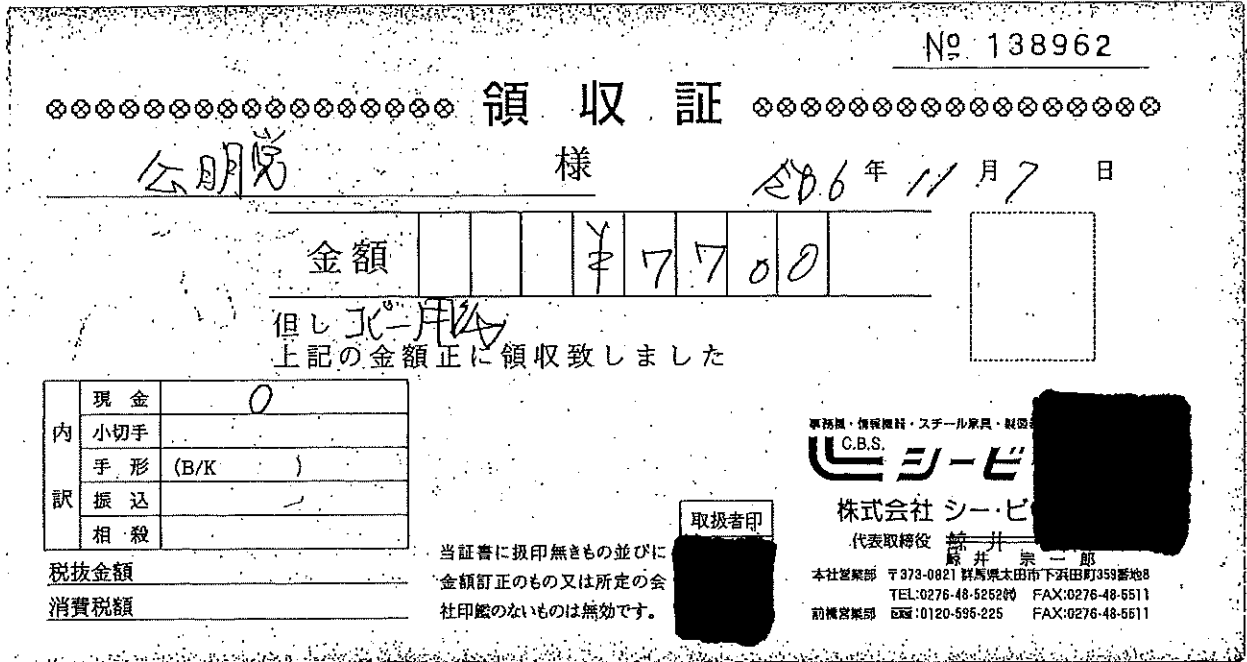 № 138962
領収証
公明党 様 令和6年11月7日
金額 ¥7700
但し コピー用紙
上記の金額正に領収致しました
内訳
現金 0
小切手
手形 (B/K )
振込
相殺
税抜金額
消費税額
当証書に扱印無きもの並びに
金額訂正のもの又は所定の会
社印鑑のないものは無効です。
取扱者印
事務機・情報機器・スチール家具・製図
C.B.S.
シービ
株式会社 シー・ビ
代表取締役 鯨井
鯨井 宗一郎
本社営業部 〒373-0821 群馬県太田市下浜田町359番地8
TEL:0276-48-5252㈹ FAX:0276-48-5511
前橋営業部 :0120-595-225 FAX:0276-48-5511